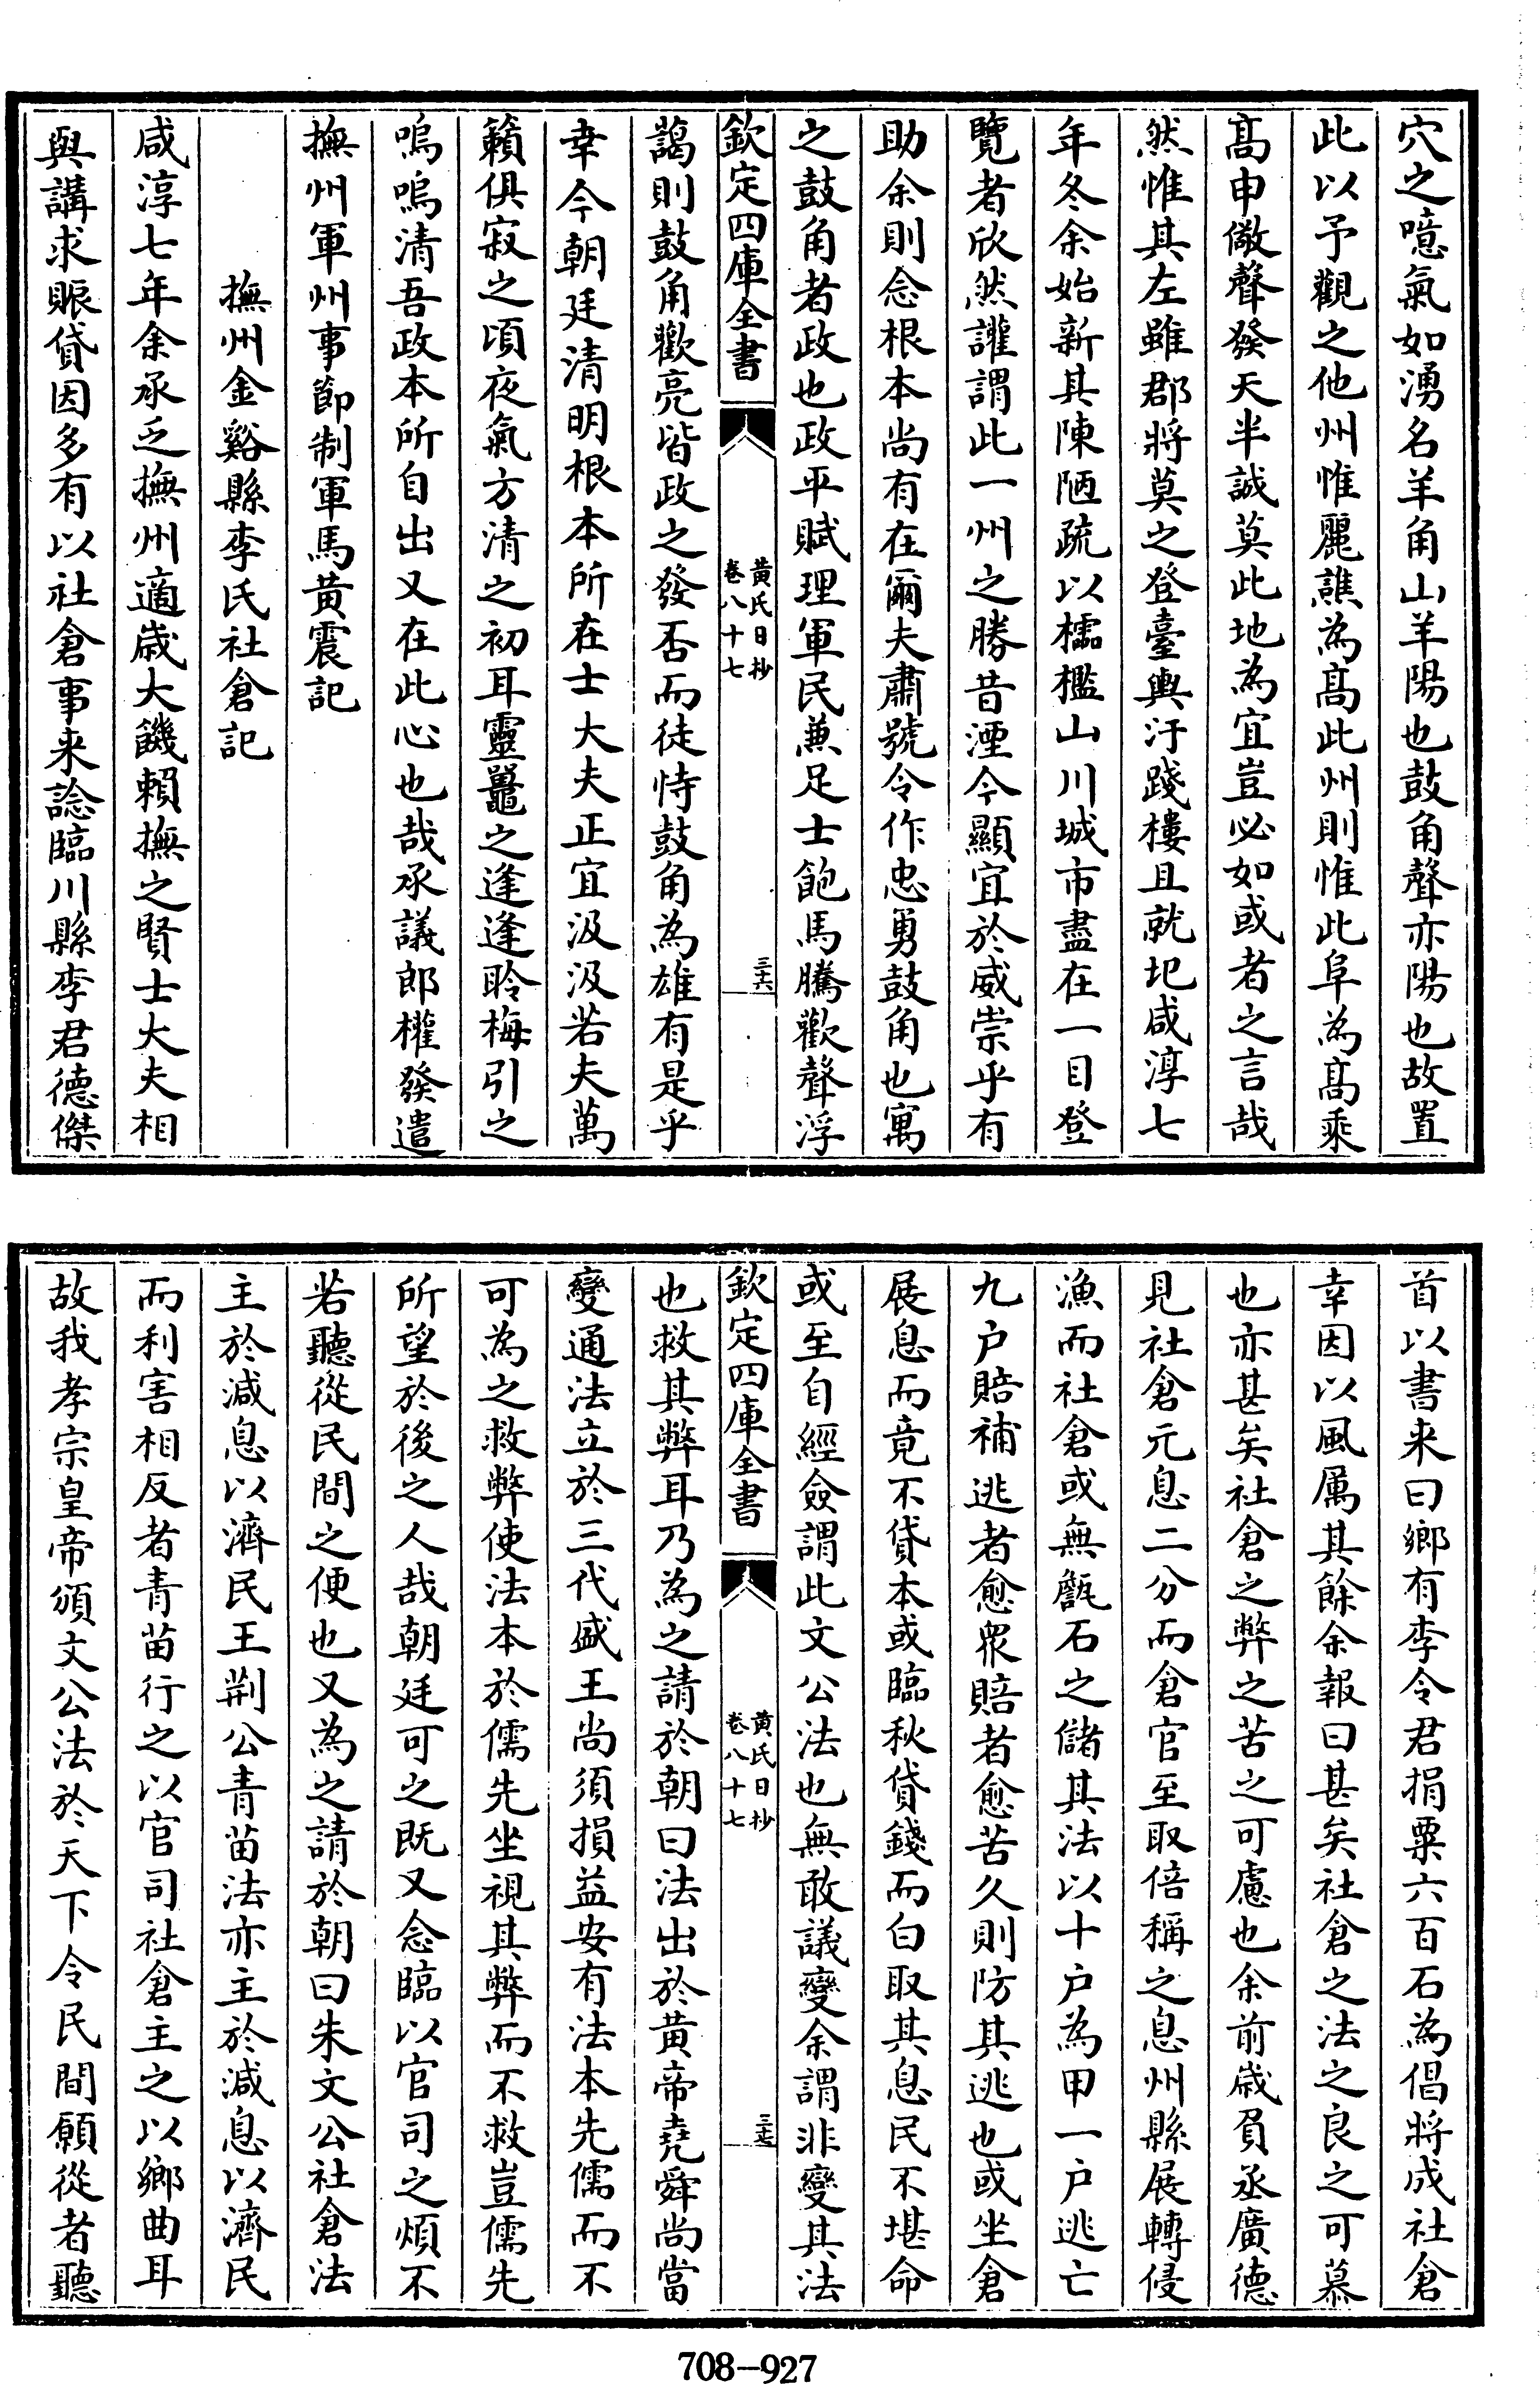 穴之噫氣如湧名羊角山羊陽也鼓角聲亦陽也故置
此以予觀之他州惟麗譙為高此州則惟此阜為高乘
高申儆聲發天半誠莫此地為宜豈必如或者之言哉
然惟其左雖郡將莫之登臺輿汙踐樓且就圯咸淳七
年冬余始新其陳陋疏以櫺檻山川城市盡在一目登
覽者欣然讙謂此一州之勝昔湮今顯宜於威崇乎有
助余則念根本尚有在爾夫肅號令作忠勇鼓角也寓
之鼓角者政也政平賦理軍民兼足士飽馬騰歡聲浮
欽定四庫全書
黃氏日抄
卷八十七
三十六
藹則鼓角歡亮皆政之發否而徒恃鼓角為雄有是乎
幸今朝廷清明根本所在士大夫正宜汲汲若夫萬
籟俱寂之頃夜氣方清之初耳靈鼉之逢逢聆梅引之
嗚嗚清吾政本所自出又在此心也哉承議郎權發遣
撫州軍州事節制軍馬黃震記
撫州金谿縣李氏社倉記
咸淳七年余承乏撫州適歲大饑賴撫之賢士大夫相
與講求賑貸因多有以社倉事来諗臨川縣李君德傑
首以書来曰鄉有李令君捐粟六百石為倡將成社倉
幸因以風厲其餘余報曰甚矣社倉之法之良之可慕
也亦甚矣社倉之弊之苦之可慮也余前歲貟丞廣德
見社倉元息二分而倉官至取倍稱之息州縣展轉侵
漁而社倉或無甔石之儲其法以十户為甲一户逃亡
九户賠補逃者愈衆賠者愈苦久則防其逃也或坐倉
展息而竟不貸本或臨秋貸錢而白取其息民不堪命
或至自經僉謂此文公法也無敢議變余謂非變其法
欽定四庫全書
黃氏日抄
卷八十七
三十七
也救其弊耳乃為之請於朝曰法出於黃帝堯舜尚當
變通法立於三代盛王尚須損益安有法本先儒而不
可為之救弊使法本於儒先坐視其弊而不救豈儒先
所望於後之人哉朝廷可之既又念臨以官司之煩不
若聽從民間之便也又為之請於朝曰朱文公社倉法
主於減息以濟民王荆公青苗法亦主於減息以濟民
而利害相反者青苗行之以官司社倉主之以鄉曲耳
故我孝宗皇帝頒文公法於天下令民間願從者聽
708-927